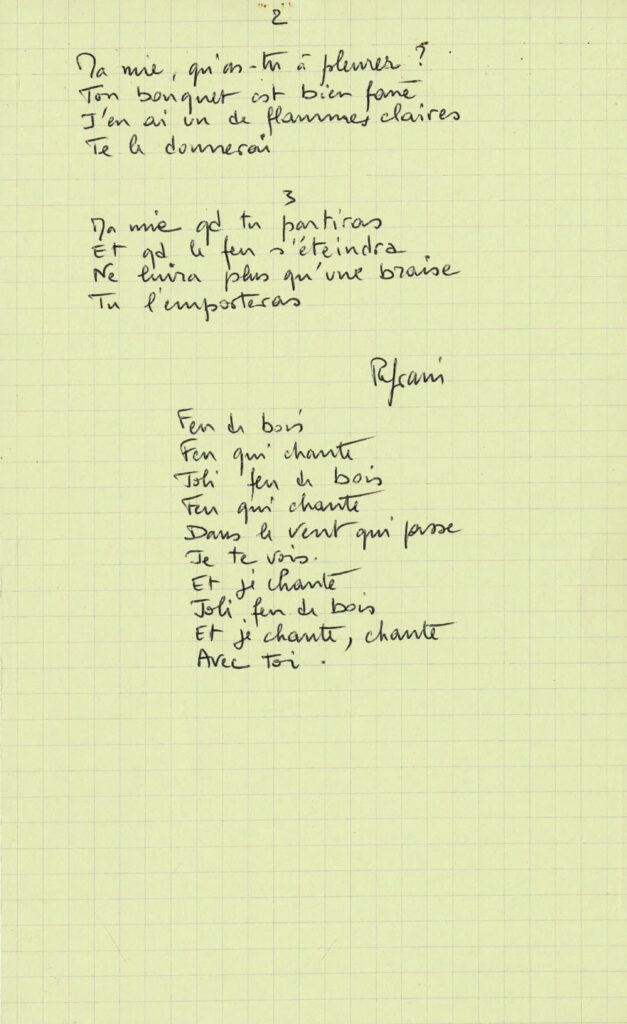 2
Ma mie, qu'as-tu à pleurer ?
Ton bouquet est bien fané
J'en ai un de flammes claires
Te le donnerai
3
Ma mie qd tu partiras
Et qd le feu s'éteindra
Ne luira plus qu'une braise
Tu l'emporteras
Refrain
Feu de bois
Feu qui chante
Joli feu de bois
Feu qui chante
Dans le vent qui passe
Je te vois.
Et je chante
Joli feu de bois
Et je chante, chante
Avec toi.